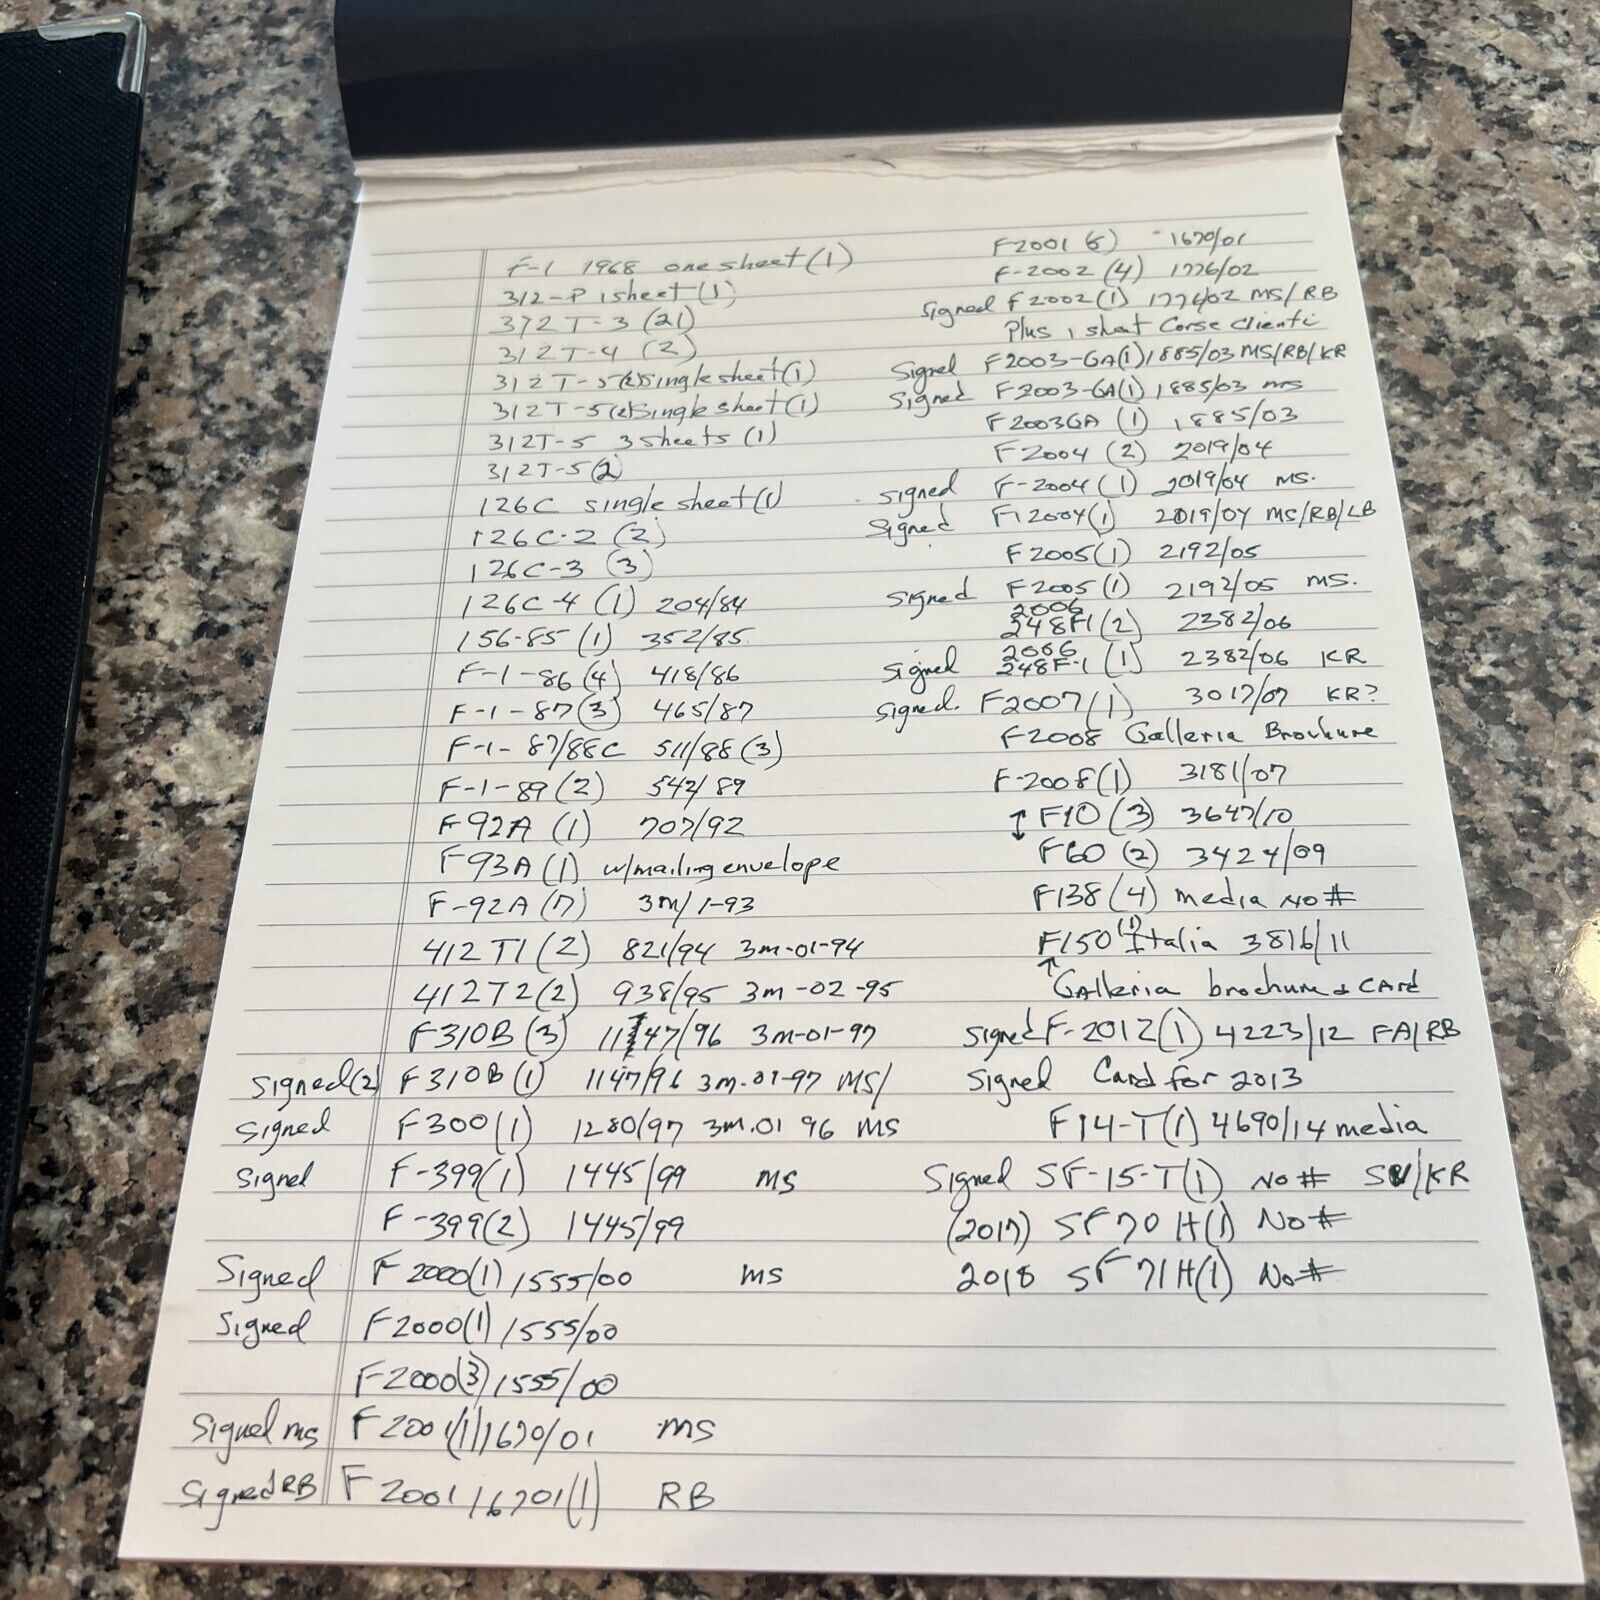 F-1 1968 one sheet (1)
312-P 1 sheet (1)
312 T-3 (21)
312 T-4 (2)
312 T-5 (2) single sheet (1)
312 T-5 (2) single sheet (1)
312T-5 3 sheets (1)
312T-5 (2)
126C single sheet (1)
126C-2 (2)
126C-3 (3)
126C-4 (1) 204/84
156-85 (1) 352/85
F-1-86 (4) 418/86
F-1-87 (3) 465/87
F-1-87/88C 511/88 (3)
F-1-89 (2) 542/89
F92A (1) 707/92
F93A (1) w/mailing envelope
F-92A (7) 3M/1-93
412 T1 (2) 821/94 3m-01-94
412T2 (2) 938/95 3m-02-95
F310B (3) 1147/96 3m-01-97
Signed (2) F310B (1) 1147/96 3m-01-97 MS/
Signed F300 (1) 1280/97 3m.01 96 MS
Signed F-399 (1) 1445/99 MS
F-399 (2) 1445/99
Signed F2000 (1) 1555/00 MS
Signed F2000 (1) 1555/00
F2000 (3) 1555/00
Signed ms F2001 (1) 1670/01 MS
Signed RB F2001 16701 (1) RB
F2001 (5) 1670/01
F-2002 (4) 1776/02
Signed F2002 (1) 1776/02 MS/RB
Plus 1 sheet Corse clienti
Signed F2003-GA (1) 1885/03 MS/RB/KR
Signed F2003-GA (1) 1885/03 ms
F2003GA (1) 1885/03
F2004 (2) 2019/04
Signed F-2004 (1) 2019/04 MS.
Signed F12004 (1) 2019/04 MS/RB/LB
F2005 (1) 2192/05
Signed F2005 (1) 2192/05 MS.
2006
248F1 (2) 2382/06
2006
Signed 248F-1 (1) 2382/06 KR
Signed. F2007 (1) 3017/07 KR?
F2008 Galleria Brochure
F-2008 (1) 3181/07
↕ F10 (3) 3647/10
F60 (2) 3424/09
F138 (4) media No #
F150 (1) Italia 3816/11
↑ Galleria brochure & Card
Signed F-2012 (1) 4223/12 FA/RB
Signed Card for 2013
F14-T (1) 4690/14 media
Signed SF-15-T (1) No # SV/KR
(2017) SF70H (1) No #
2018 SF71H (1) No #